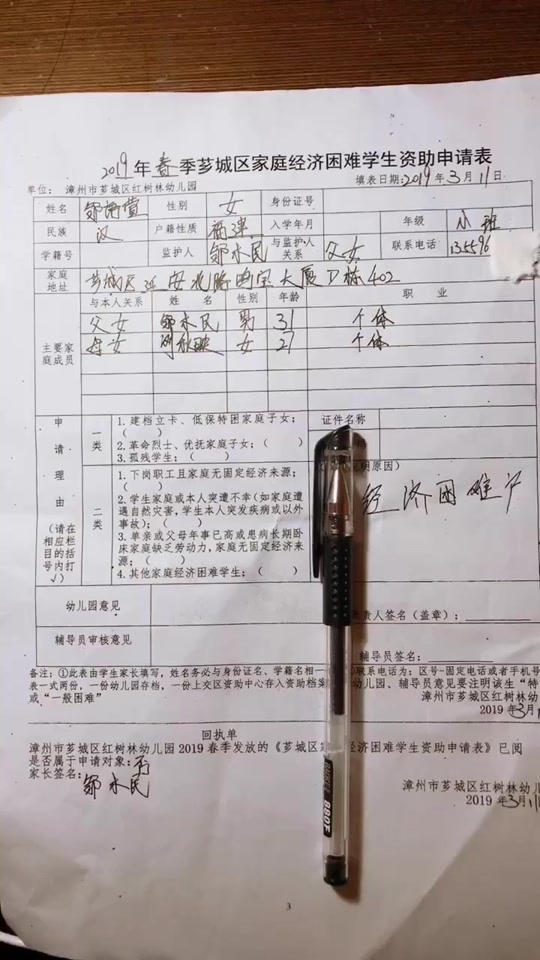 2019年春季芗城区家庭经济困难学生资助申请表
单位: 漳州市芗城区红树林幼儿园 填表日期:2019年3月11日
姓名 性别 女 身份证号
民族 汉 户籍性质 入学年月 年级 小班
学籍号 监护人 邹水民 与监护人关系 父女 联系电话 135596
家庭地址 芗城区延安北路 大厦D栋402
主要家庭成员 与本人关系 姓 名 性别 年龄 职 业
父女 邹水民 男 31 个体
母女 女 27 个体
申请理由(请在相应栏目的括号内打√)
一类
1.建档立卡、低保特困家庭子女;
( )
2.革命烈士、优抚家庭子女;( )
3.孤残学生;( )
证件名称
二类
1.下岗职工且家庭无固定经济来源;
( )
2.学生家庭或本人突遭不幸(如家庭遭
遇自然灾害,学生本人突发疾病或以外
事故);( )
3.单亲或父母年事已高或患病长期卧
床家庭缺乏劳动力,家庭无固定经济来
源;( )
4.其他家庭经济困难学生;( )
明原因)
经济困难户
幼儿园意见 责人签名(盖章):
辅导员审核意见 辅导员签名:
备注:①此表由学生家长填写,姓名务必与身份证名、学籍名相一 联系电话为:区号-固定电话或者手机号
表一式两份,一份幼儿园存档,一份上交区资助中心存入资助档案 幼儿园、辅导员意见要注明该生“特
或“一般困难”
漳州市芗城区红树林幼儿
2019年3月11
回执单
漳州市芗城区红树林幼儿园2019春季发放的《芗城区家 经济困难学生资助申请表》已阅
是否属于申请对象:否
家长签名:邹水民
漳州市芗城区红树林幼儿
2019年3月11
880F
3